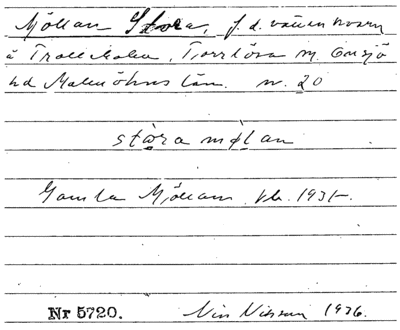 Möllan Stora, f.d. vattenkvarn
å Trollekulla, Torrlösa sn. Onsjö
hd Malmöhus län. nr. 20
stǫra mølan
Gamla Möllan, fb. 1931.
Nr 5720. Nils Nilsson 1936.